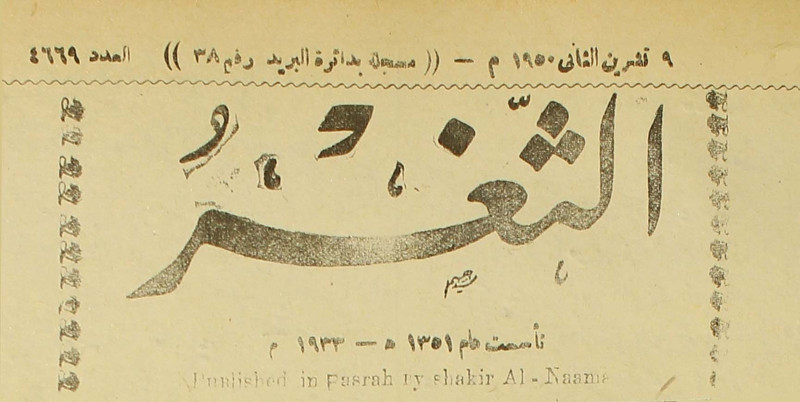 ٩ تشرين الثاني ١٩٥٠ م — ((مسجل بدائرة البريد رقم ٣٨)) العدد ٤٦٦٩
الثَّغْرُ
تأسست عام ١٣٥١ ه — ١٩٣٣ م
Published in Basrah by shakir Al - Naama